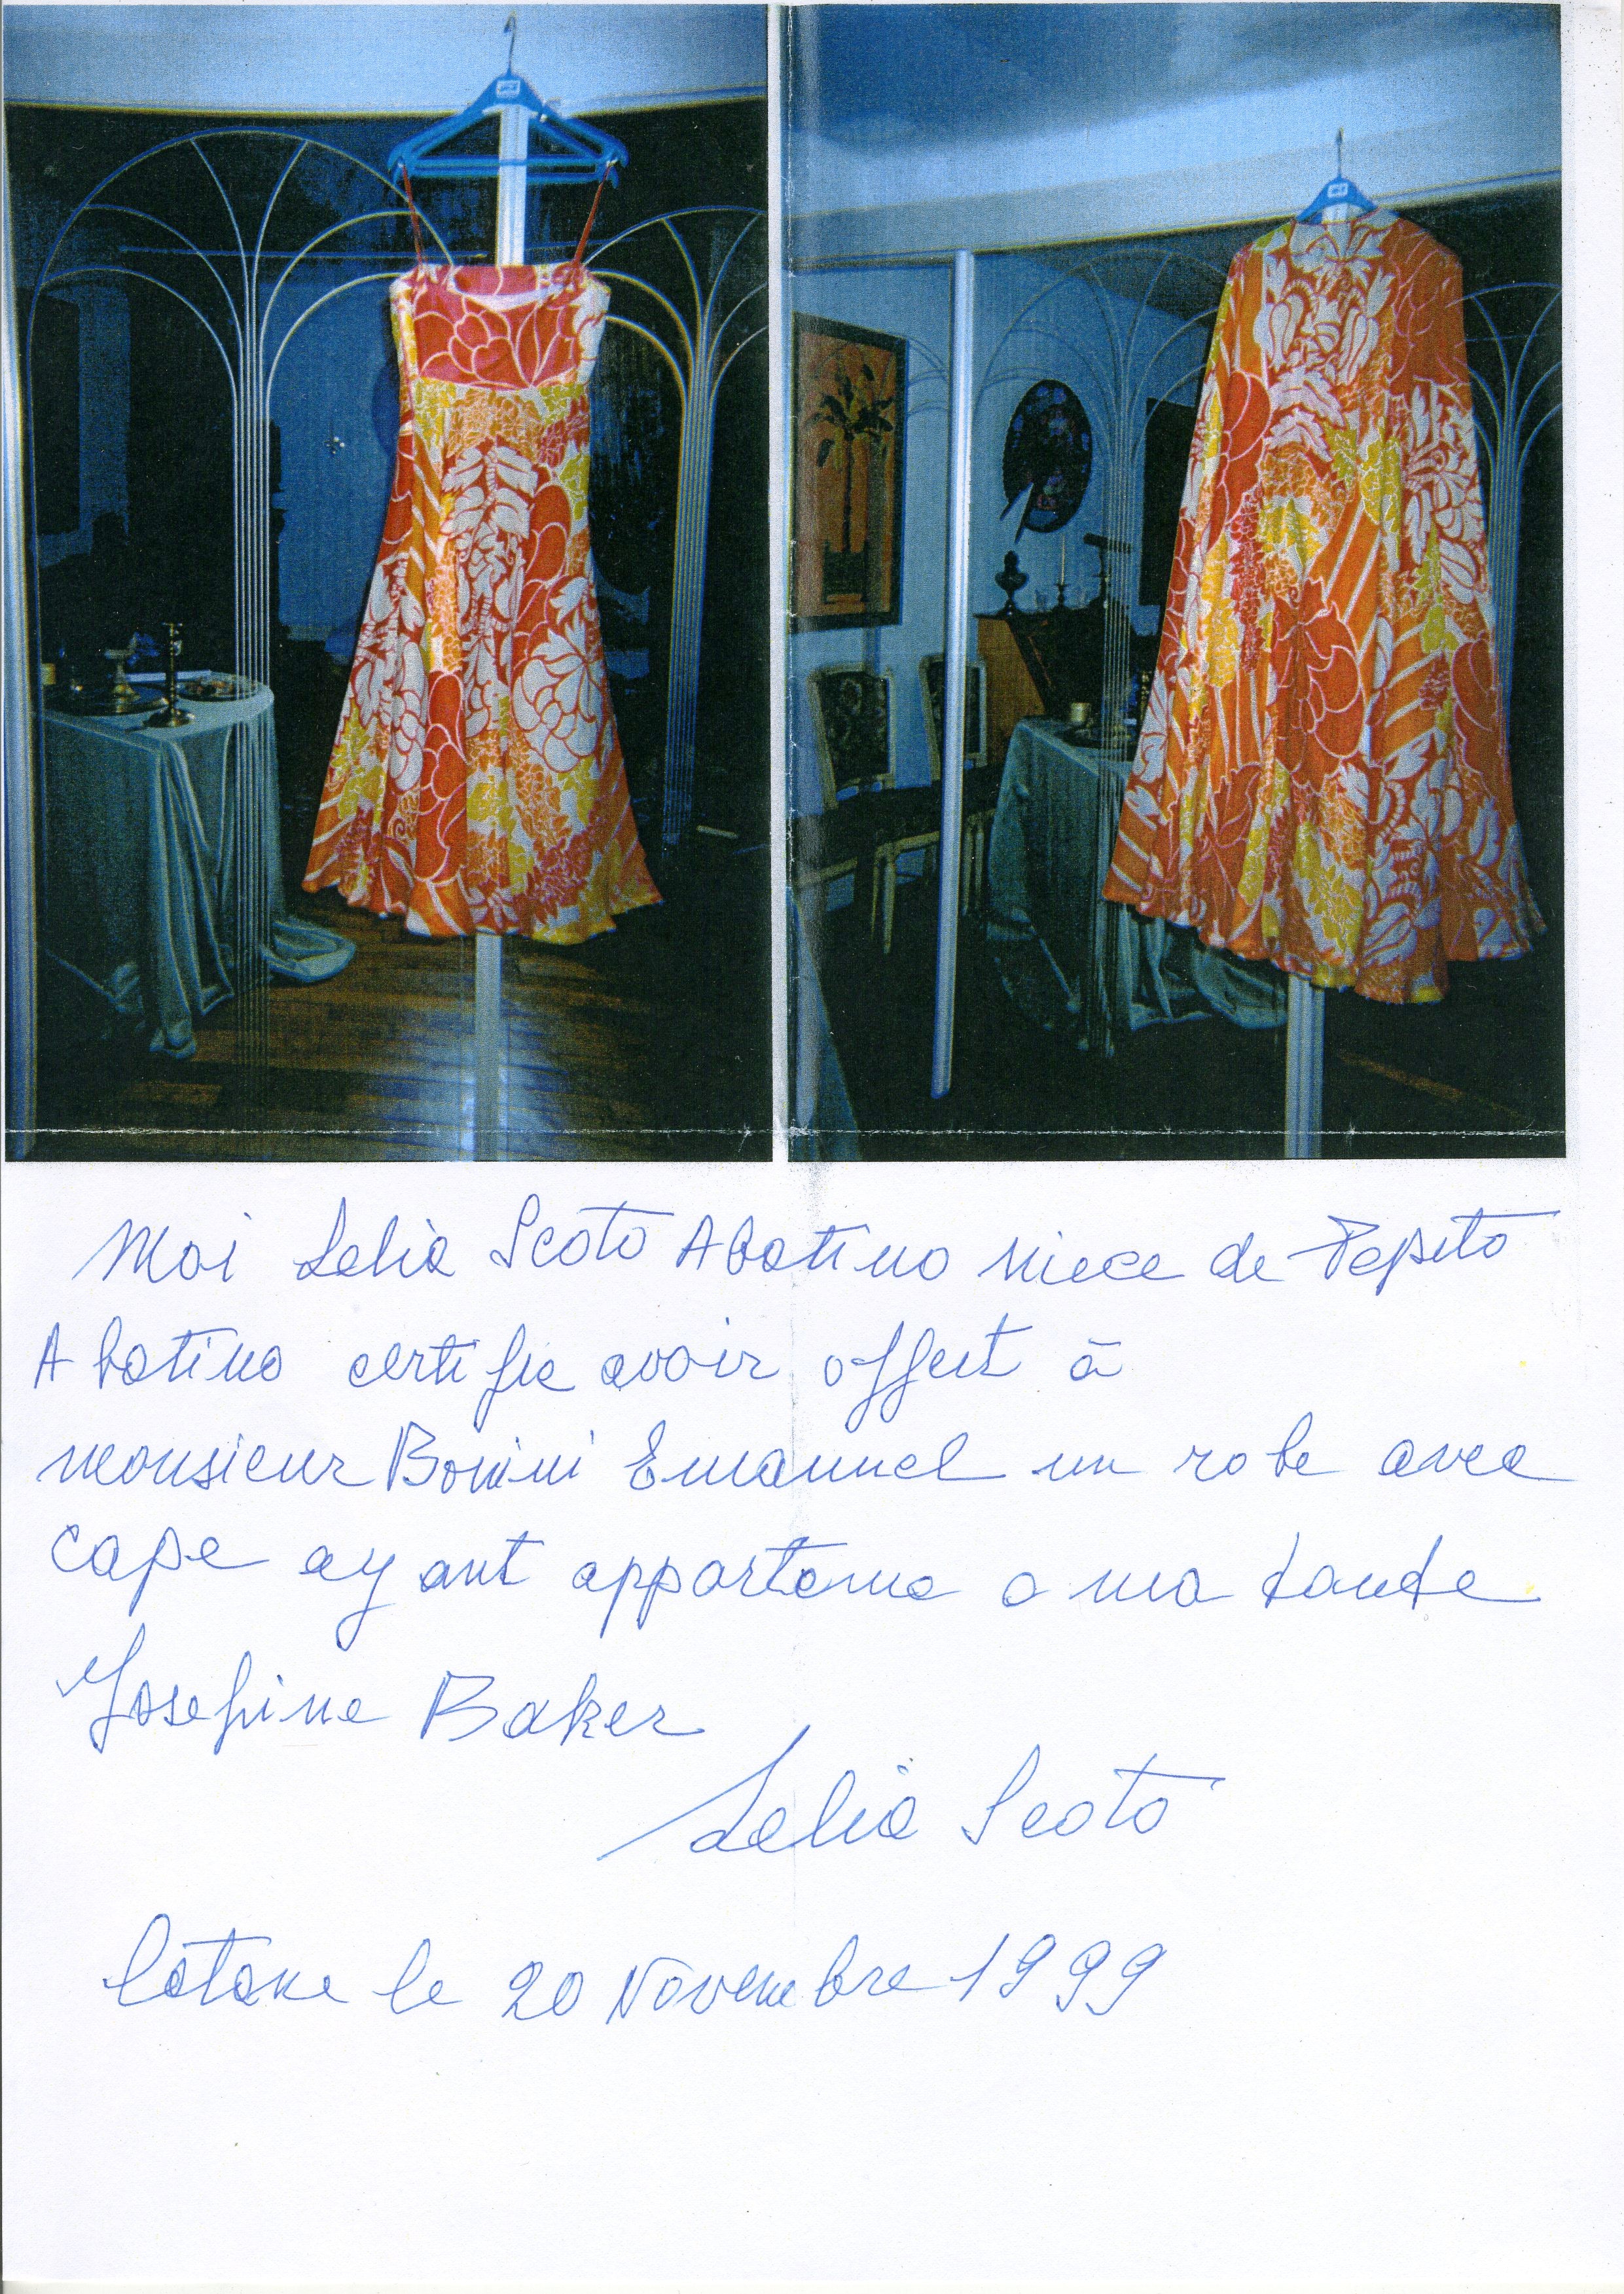 Moi Lelia Scoto Abatino niece de Pepito
Abatino certifie avoir offert à
monsieur Bonini Emanuel un robe avec
cape ayant appartenu a ma tante
Josephine Baker
Lelia Scoto
Catane le 20 Novembre 1999